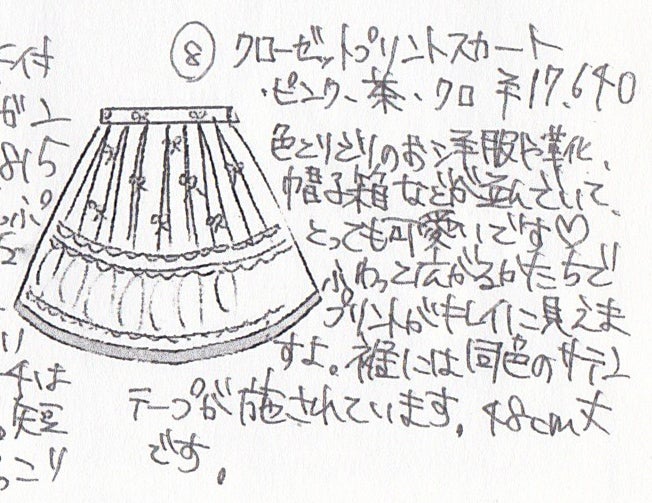 ⑧ クローゼットプリントスカート
・ピンク、茶、クロ ¥17,640
色とりどりのお洋服や革靴、
帽子箱などが並んでいて、
とっても可愛いです♡
ふわっと広がるかたちで
プリントがキレイに見えま
すよ。裾には同色のサテン
テープが施されています。48cm丈
です。